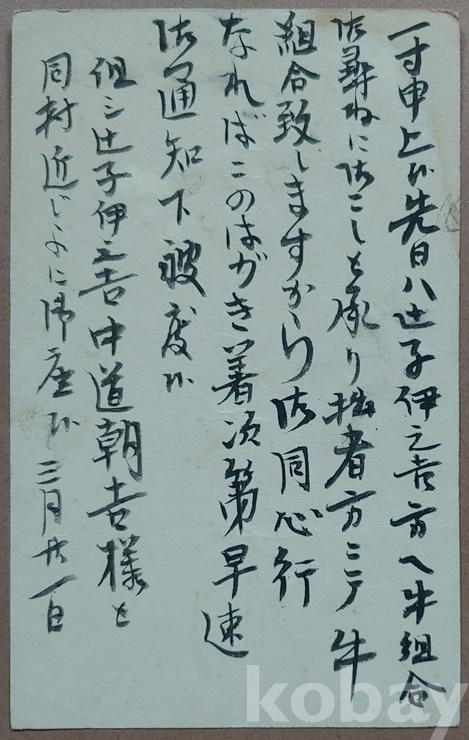 一寸申上候先日ハ辻子伊之吉方へ牛組合
御尋ねに御こしと承り拙者方ニテ牛
組合致しますから御同心行
なればこのはがき着次第早速
御通知下被度候
但シ辻子伊之吉中道朝吉様と
同村近じょに御座候 三月廿一日
kobay